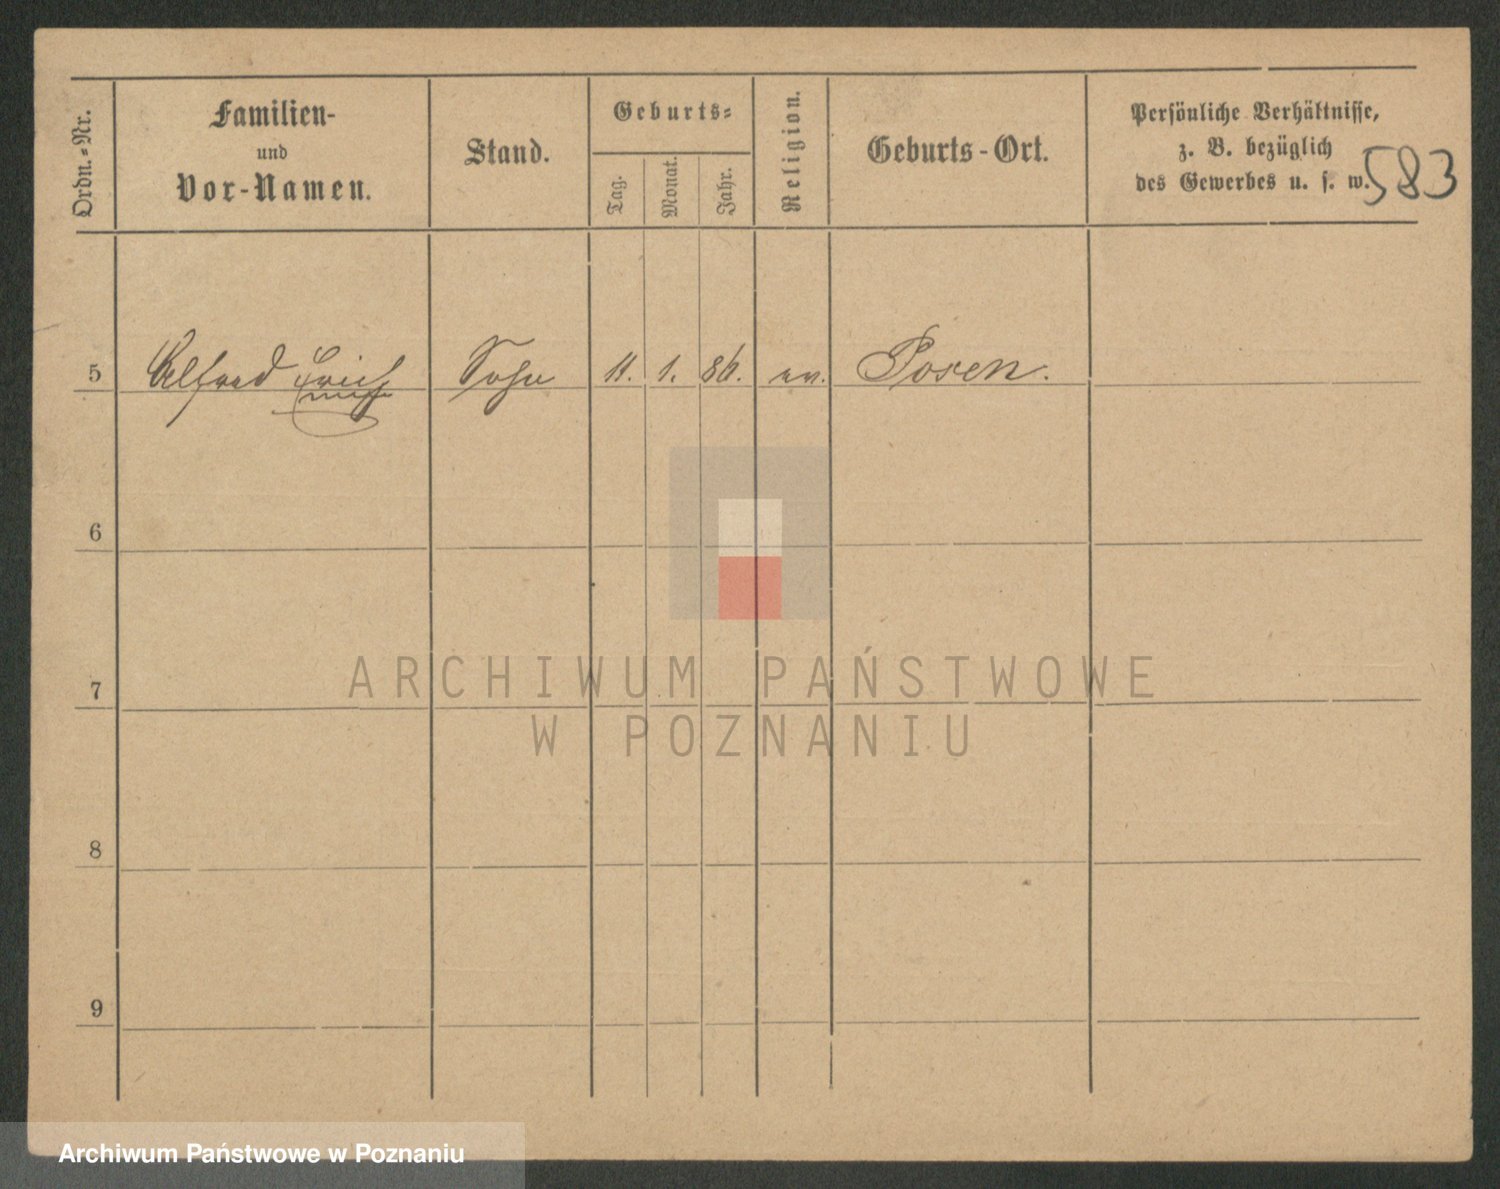 Ordn.-Nr.
Familien-
und
Vor-Namen.
Stand.
Geburts-
Tag.
Monat.
Jahr.
Religion.
Geburts-Ort.
Persönliche Verhältnisse,
z. B. bezüglich
des Gewerbes u. s. w.
583
5 Alfred Erich Sohn 11. 1. 86. ev. Posen.
6
7
8
9
ARCHIWUM PAŃSTWOWE
W POZNANIU
Archiwum Państwowe w Poznaniu